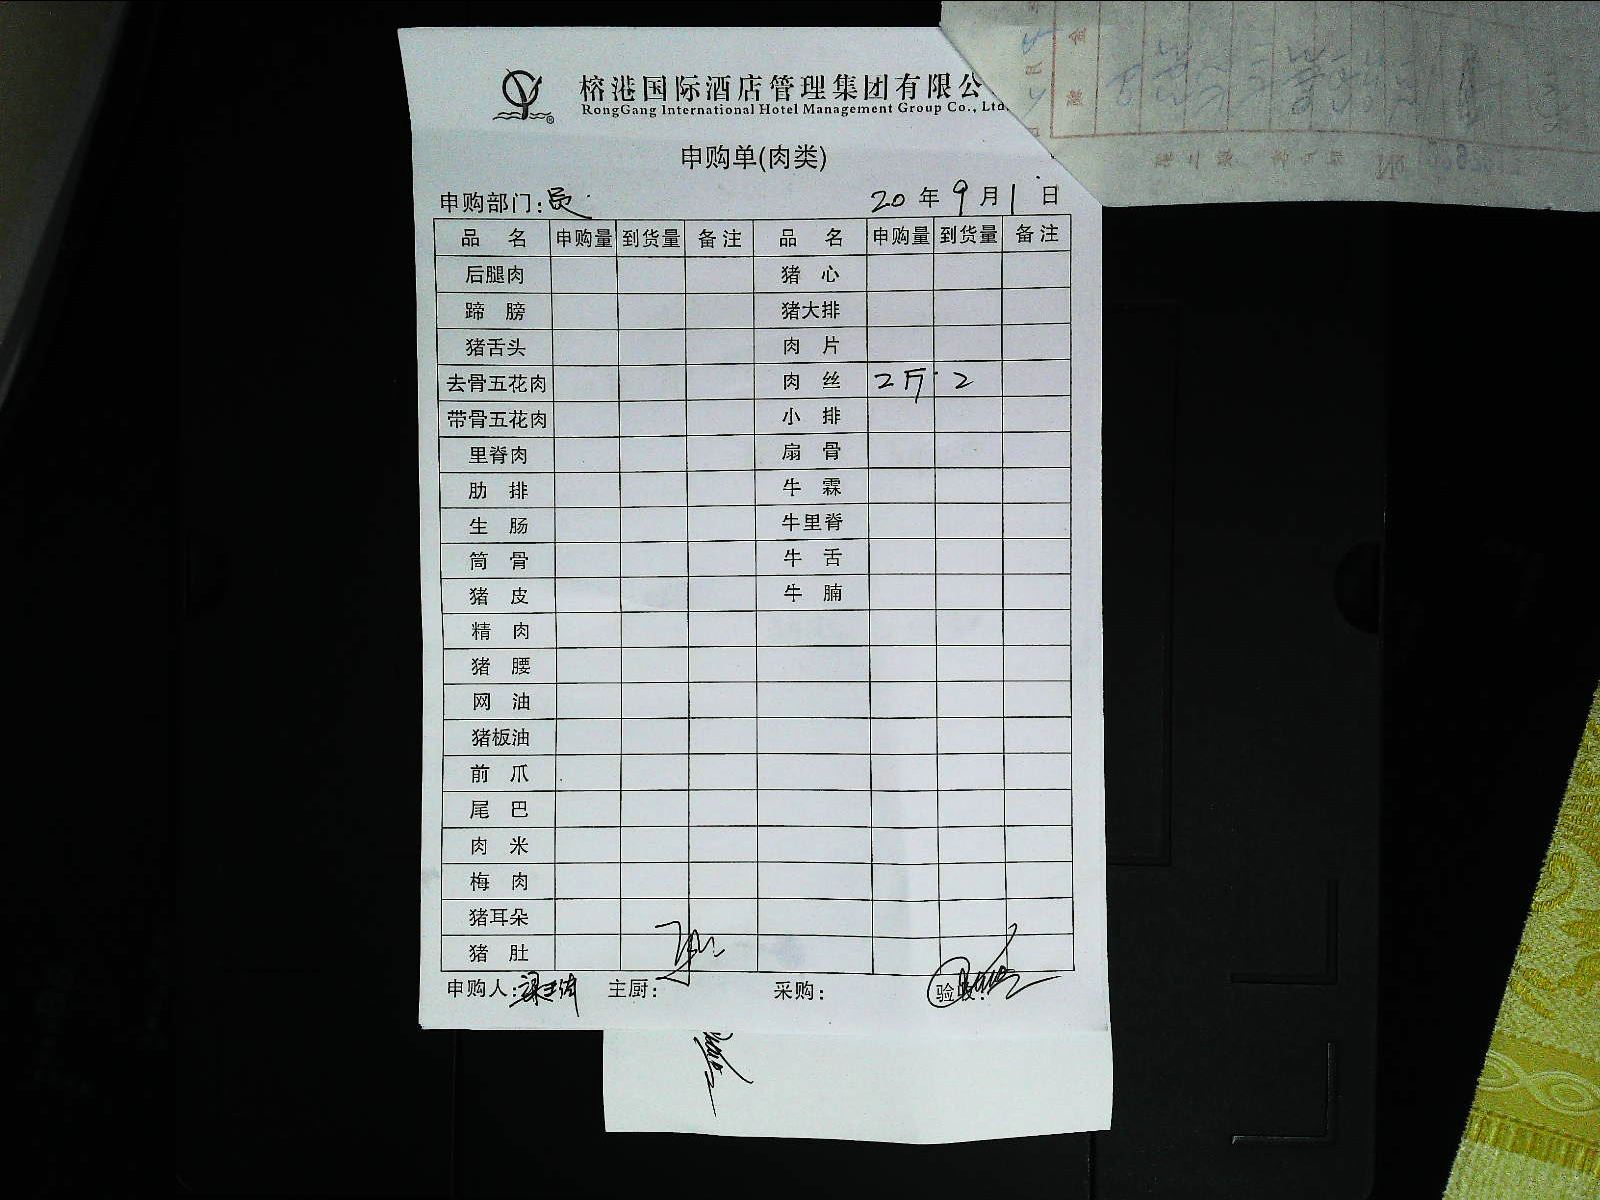 榕港国际酒店管理集团有限公
RongGang International Hotel Management Group Co., Ltd.
申购单(肉类)
申购部门：员 20年9月1日
品名 申购量 到货量 备注 品名 申购量 到货量 备注
后腿肉 猪心
蹄膀 猪大排
猪舌头 肉片
去骨五花肉 肉丝 2斤 2
带骨五花肉 小排
里脊肉 扇骨
肋排 牛霖
生肠 牛里脊
筒骨 牛舌
猪皮 牛腩
精肉
猪腰
网油
猪板油
前爪
尾巴
肉米
梅肉
猪耳朵
猪肚
申购人： 主厨： 采购： 验收：